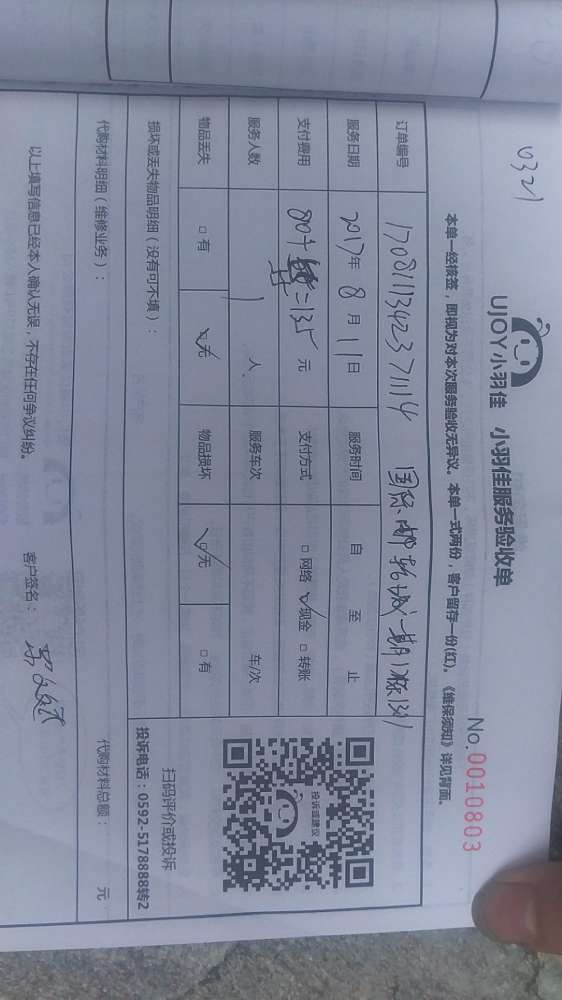 0321
UJOY小羽佳 小羽佳服务验收单
No. 0010803
本单一经核签，即视为对本次服务验收无异议。本单一式两份，客户留存一份(红)。《维保须知》详见背面。
订单编号 1708111342371114 国际邮轮城一期
服务日期 2017年 8 月 11 日 服务时间 自 至 止
支付费用 80+ =135 元 支付方式 □ 网络 ☑现金 □ 转账
服务人数 1 人 服务车次 车/次
物品丢失 □ 有 ☑无 物品损坏 ☑无 □ 有
损坏或丢失物品明细（没有可不填）：
投诉或建议
扫码评价或投诉
投诉电话：0592-5178888转2
代购材料明细（维修业务）： 代购材料总额： 元
以上填写信息已经本人确认无误，不存在任何争议纠纷。 客户签名：